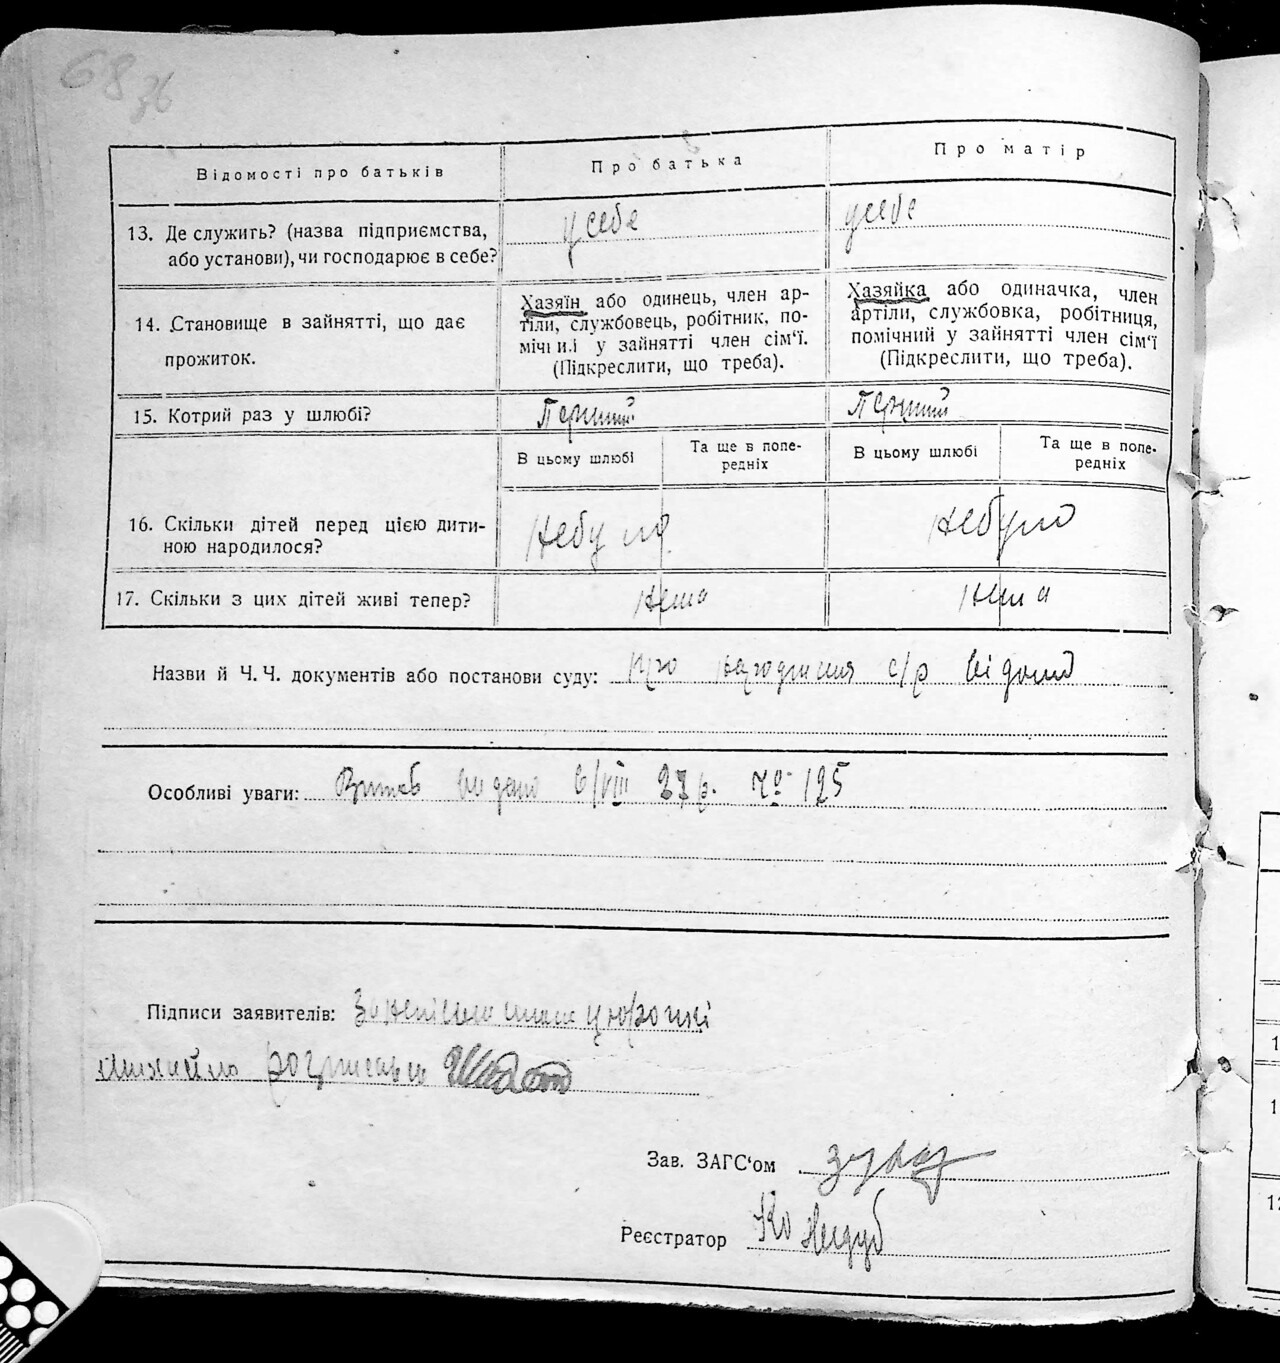 68 зв
Відомості про батьків
Про батька
Про матір
13. Де служить? (назва підприємства, або установи), чи господарює в себе?
у себе
у себе
14. Становище в зайнятті, що дає прожиток.
Хазяїн або одинець, член ар-
тіли, службовець, робітник, по-
мічний у зайнятті член сім'ї.
(Підкреслити, що треба).
Хазяйка або одиначка, член
артіли, службовка, робітниця,
помічний в зайнятті член сім'ї
(Підкреслити, що треба).
15. Котрий раз у шлюбі?
Перший
Перший
В цьому шлюбі
Та ще в попе-
редніх
В цьому шлюбі
Та ще в попе-
редніх
16. Скільки дітей перед цією дити-
ною народилося?
Небуло
Небуло
17. Скільки з цих дітей живі тепер?
Нема
Нема
Назви й Ч. Ч. документів або постанови суду: Про народження с/р відомо
Особливі уваги: Витяг видано 6/VIII 27 р. № 125
Підписи заявителів:
михайло розписавсь
Зав. ЗАГС'ом
Реєстратор
1
1
12